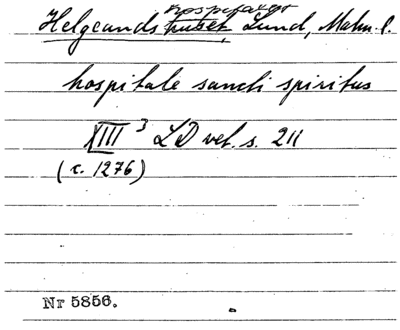 hospitalet
Helgeandshuset, Lund, Malm. l.
hospitale sancti spiritus
XIII 3 LD vet. s. 211
(c. 1276)
Nr 5856.